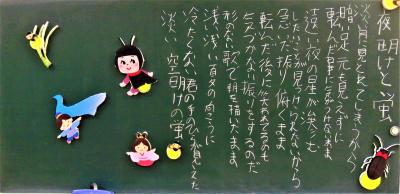 夜明けと蛍
淡い月に見とれてしまうから
暗い足元も見えずに
転んだことに気がつけないまま
遠い夜の星が滲む
したいことが見つけられないから
急いだ振り 俯くまま
転んだ後に笑われてるのも
気づかない振りをするのだ
形のない歌で朝を描いたまま
浅い浅い夏の向こうに
冷たくない君の手のひらが見えた
淡い空 明けの蛍